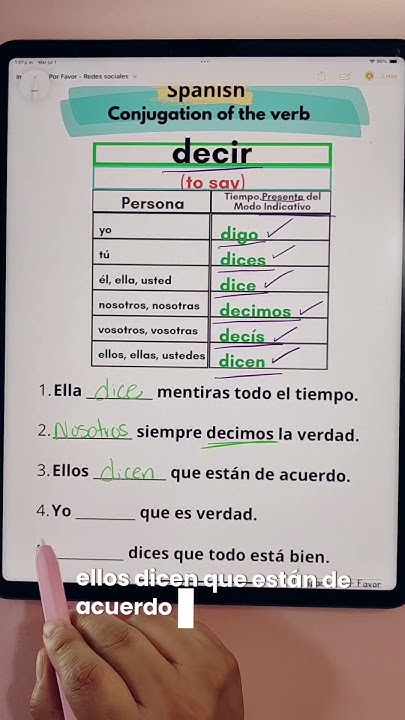 1:37 p.m. Mar Jul 1
90%
Por Favor - Redes sociales
Listo
Spanish
Conjugation of the verb
decir
(to say)
Persona Tiempo Presente del Modo Indicativo
yo digo
tú dices
él, ella, usted dice
nosotros, nosotras decimos
vosotros, vosotras decís
ellos, ellas, ustedes dicen
1. Ella dice mentiras todo el tiempo.
2. Nosotros siempre decimos la verdad.
3. Ellos dicen que están de acuerdo.
4. Yo ______ que es verdad.
______ dices que todo está bien.
ellos dicen que están de
acuerdo
Favor